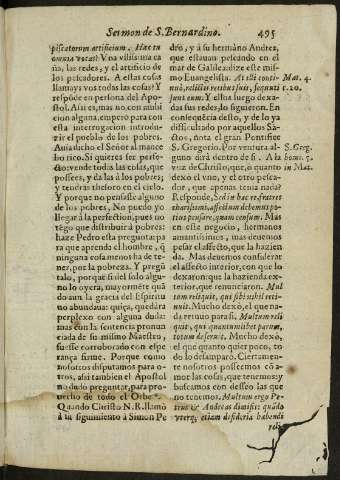 Sermon de S. Bernardino. 495
piscatorum artificium. Hæc tu
omnia vocas? Vna vilissima ca-
ña, las redes, y el artificio de
los pescadores. A estas cosas
llamays vos todas las cosas? Y
respõde en persona del Apos-
tol. Assi es, mas no con ambi-
cion alguna, empero para con
esta interrogacion introdu-
zir el pueblo de los pobres.
Auia dicho el Señor al mance
bo rico. Si quieres ser perfe-
cto: vende todas las cosas, que
possees, y da las à los pobres;
y tendras thesoro en el cielo.
Y porque no pensasse alguno
de los pobres, No puedo yo
llegar à la perfection, pues no
tẽgo que distribuirà pobres:
haze Pedro esta pregunta: pa
ra que aprenda el hombre, q̃
ninguna cosa menos ha de te-
ner, por la pobreza. Y pregũ
talo, porque si del solo algu-
no lo oyera, mayormẽte quã
do aun la gracia del Espiritu
no abundaua: quiça, quedàra
perplexo con alguna duda:
mas con la sentencia pronun
ciada de su mismo Maestro,
fuesse corroborado con espe
rança firme. Porque como
nosotros disputamos para o-
tros, assi tambien el Apostol
no dudo preguntar, para pro-
uecho de todo el Orbe.
Quando Christo N.R. llamò
à su siguimiento à Simon Pe
dro, y à su hermano Andrez,
que estauan pescando en el
mar de Galilea: dize este mis-
mo Euangelista. At illi conti- Mat. 4.
nuò, relictis retibus suis, sequuti r. 20.
sunt eum. Y estos luego dexa-
das sus redes; lo siguieron. En
consequẽcia desto, y de lo ya
dissicultado por aquellos Sã-
ctos, nota el gran Pontifice
S. Gregorio. Por ventura al- S. Greg.
guno dirà dentro de si. A la homi. 5.
voz de Christo, que, ò quanto in Mat.
dexò el vno, y el otro pesca-
dor, que apenas tenia nada?
Responde, Sed in hac re fratres
charissimi, affectum debemus po-
tius pensare, quam censum. Mas
en este negocio, hermanos
amantissimos, mas deuemos
pesar el affecto, que la hazien
da. Mas deuemos considerar
el affecto interior, con que lo
dexaron: que la hazienda ex-
terior, que renunciaron. Mul
tum reliquit, qui sibi nihil reti-
nuit. Mucho dexò, el que na-
da retuuo para si, Multum reli
quit, qui quantumlibet parum,
totum deseruit. Mucho dexò,
el que quanto quier poco, to
do lo desamparò. Ciertamen-
te nosotros posseemos cõ a-
mor las cosas, que tenemos: y
buscamos con desseo las que
no tenemos. Multum ergo Pe-
trus & Andreas dimisit: quãdo
vterq; etiam desideria habendi
reli-